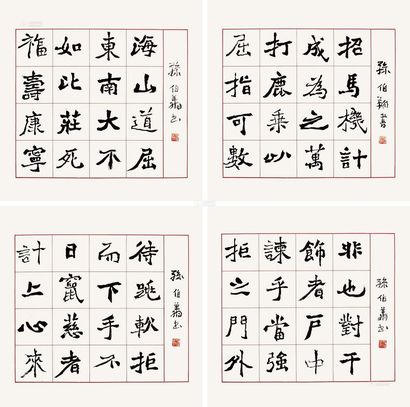 福如東海
壽比南山
康莊大道
寧死不屈
孫伯翔書
屈打成招
指鹿為馬
可乘之機
數以萬計
孫伯翔書
計日而待
上竄下跳
心慈手軟
來者不拒
孫伯翔書
拒諫飾非
之乎者也
門當戶對
外強中干
孫伯翔書